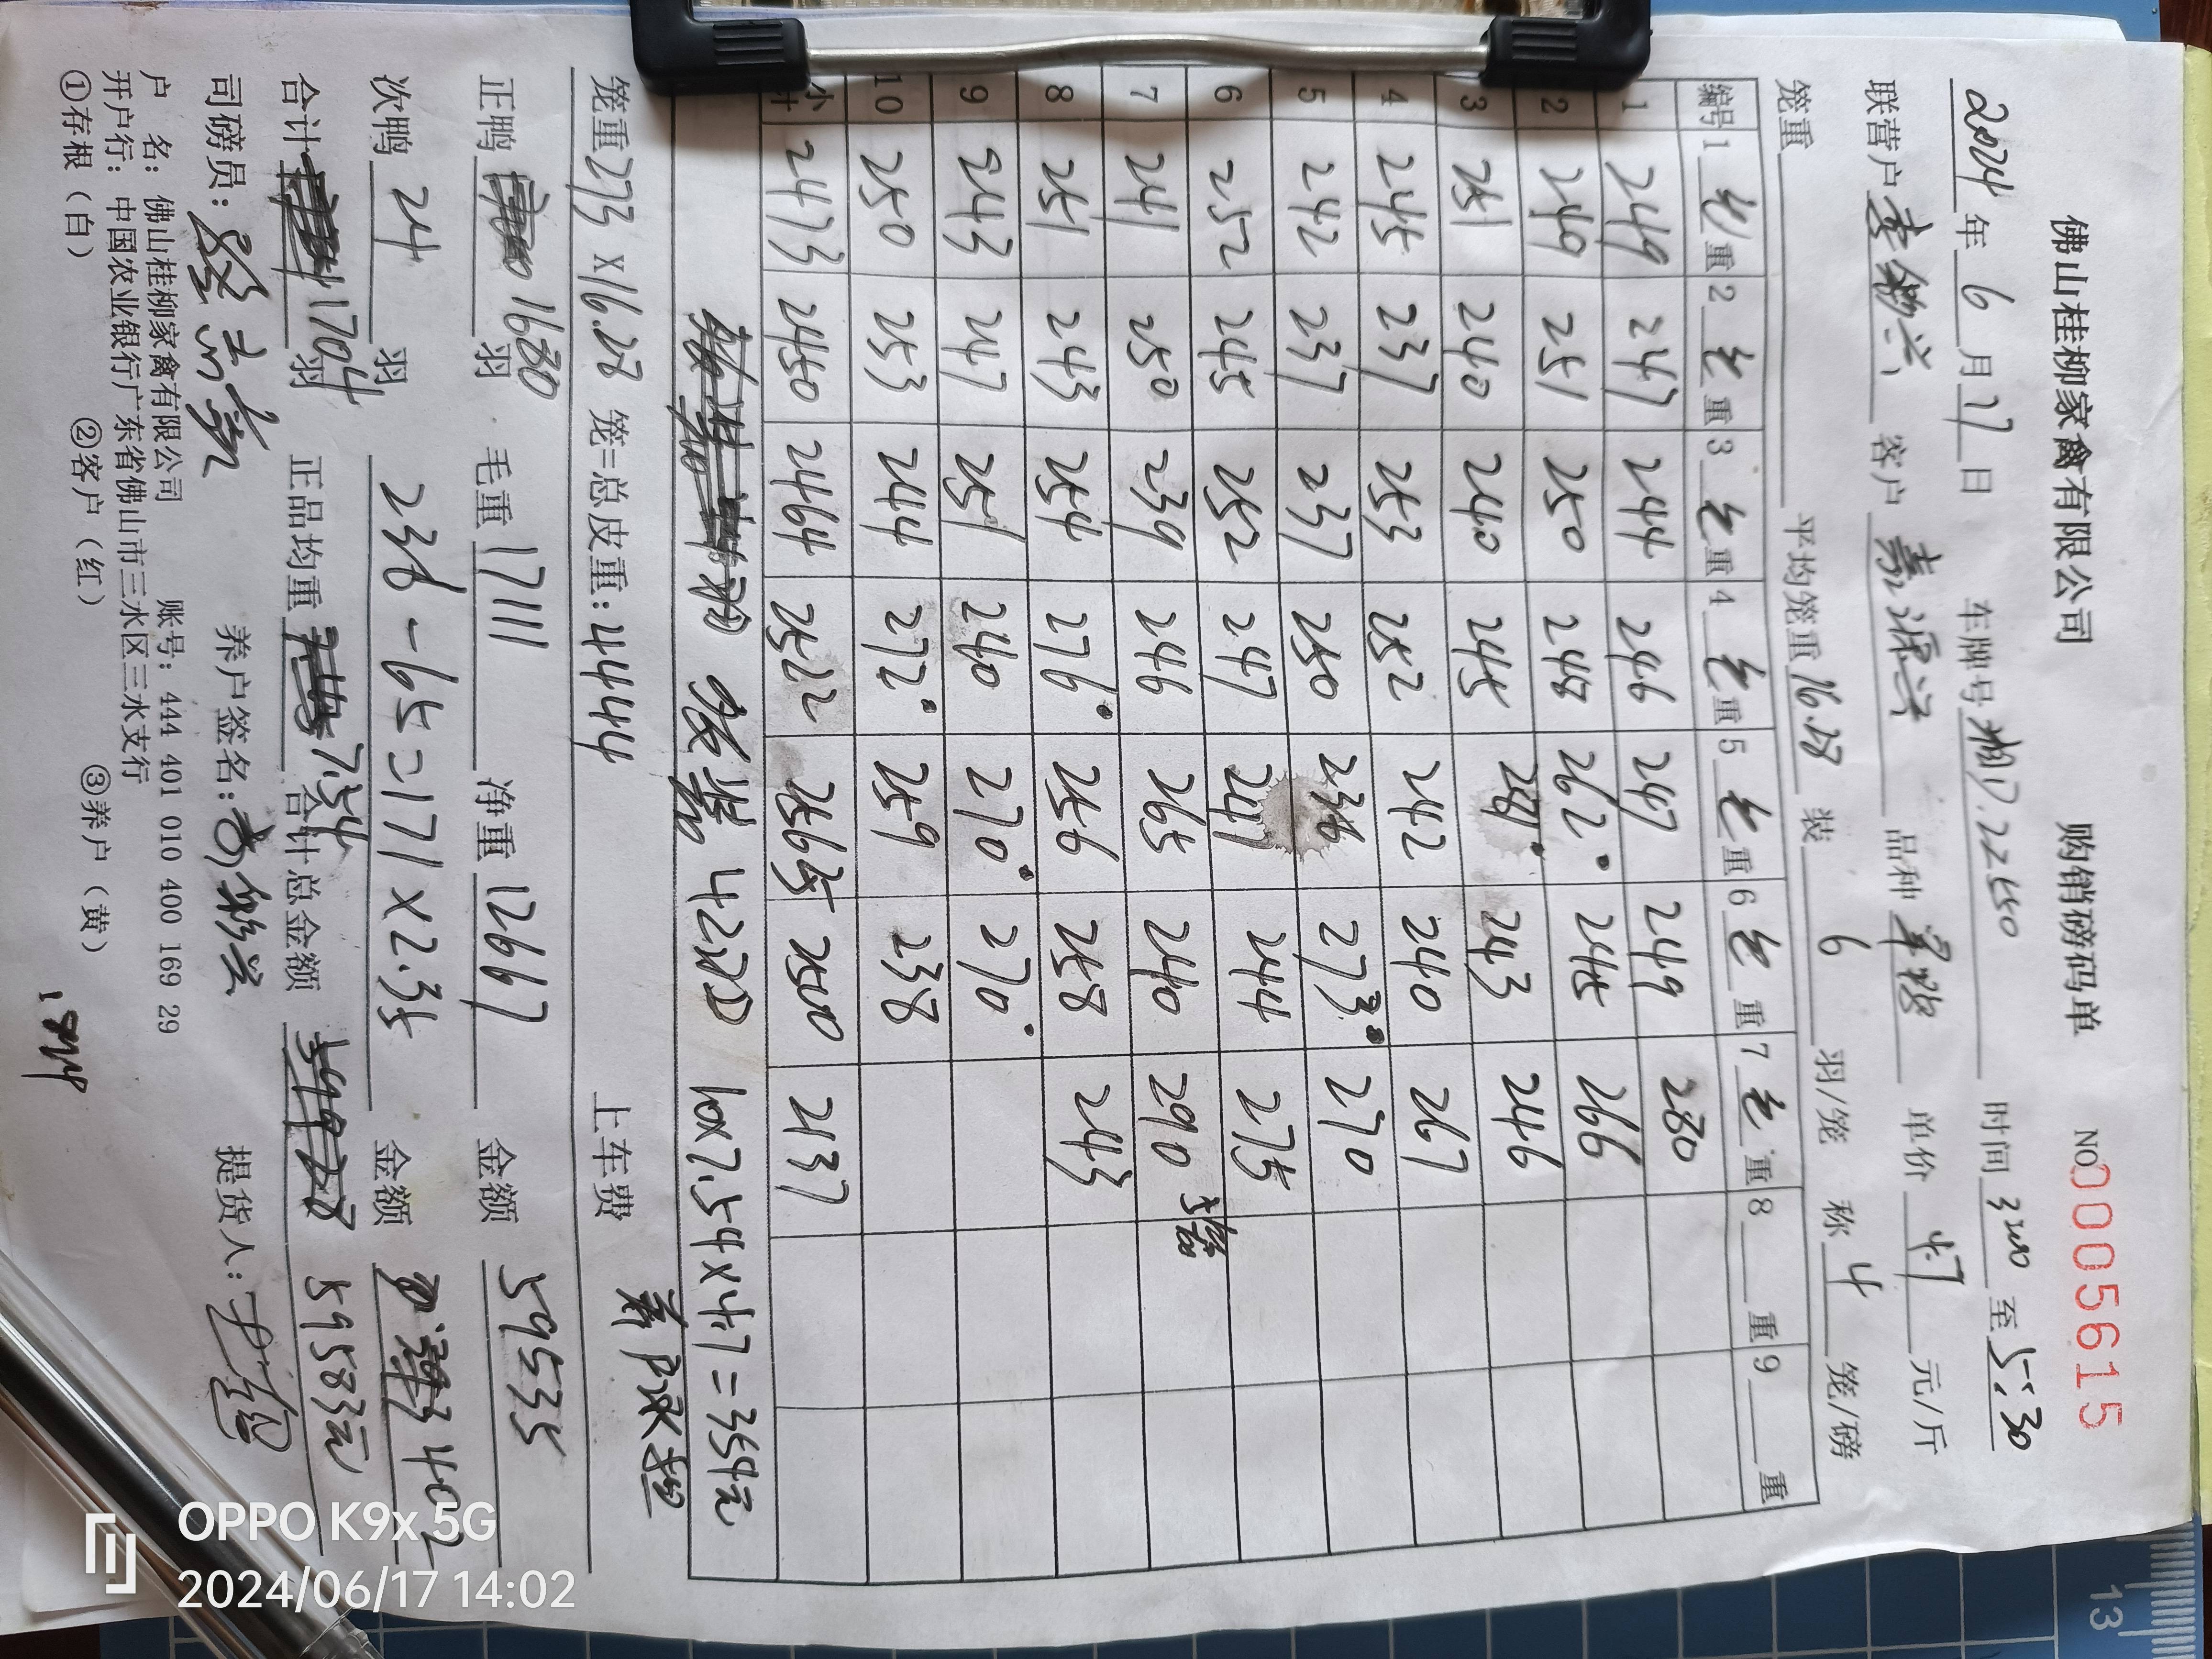 佛山桂柳家禽有限公司 购销磅码单 NO 0005615
2024年6月17日 车牌号湘D.22550 时间3:00至5:30
联营户 客户 嘉源兴 品种 单价4.7元/斤
笼重 平均笼重16.28 装6羽/笼 称4笼/磅
编号 1毛重 2毛重 3毛重 4毛重 5毛重 6毛重 7毛重 8重 9重
1 249 247 244 246 247 249 280
2 249 251 250 248 262 245 266
3 251 240 240 245 281 243 246
4 245 237 253 252 242 240 267
5 242 237 237 250 236 273 270
6 252 245 252 247 247 244 275
7 241 250 239 246 265 240 290
8 251 243 254 276 256 258 243
9 243 247 251 240 270 270
10 250 253 244 272 259 238
小计 2473 2450 2464 2522 2565 2500 2137
10x7.54x4.7=354元
笼重273x16.28笼=总皮重:4444 上车费
正鸭1680羽 毛重17111 净重12667 金额59535
次鸭24羽 236-65=171x2.35 金额 402
合计1704羽 正品均重7.54 合计总金额 59583元
司磅员: 养户签名: 提货人:
户 名:佛山桂柳家禽有限公司 账号:444 401 010 400 169 29
开户行:中国农业银行广东省佛山市三水区三水支行
①存根(白) ②客户(红) ③养户(黄)
13
OPPO K9x 5G
2024/06/17 14:02